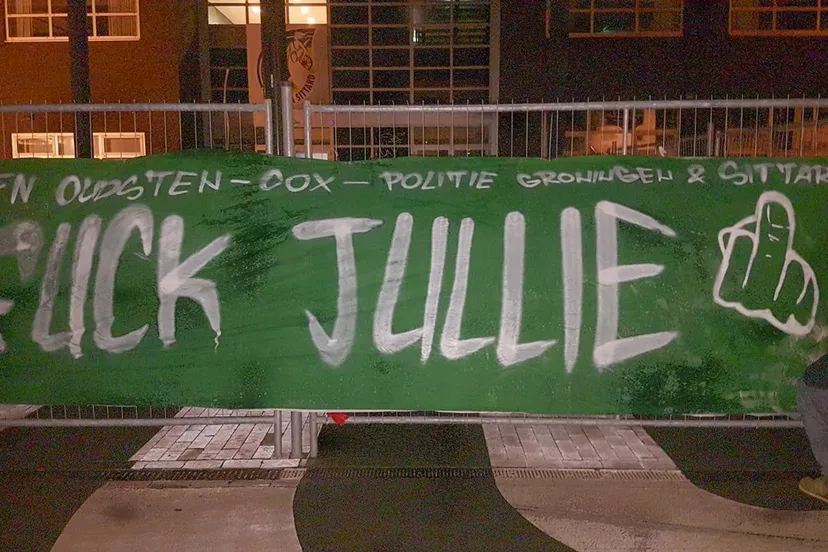 EN OUDSTEN - COX - POLITIE GRONINGEN & SITTAR
FUCK JULLIE
SITTARD